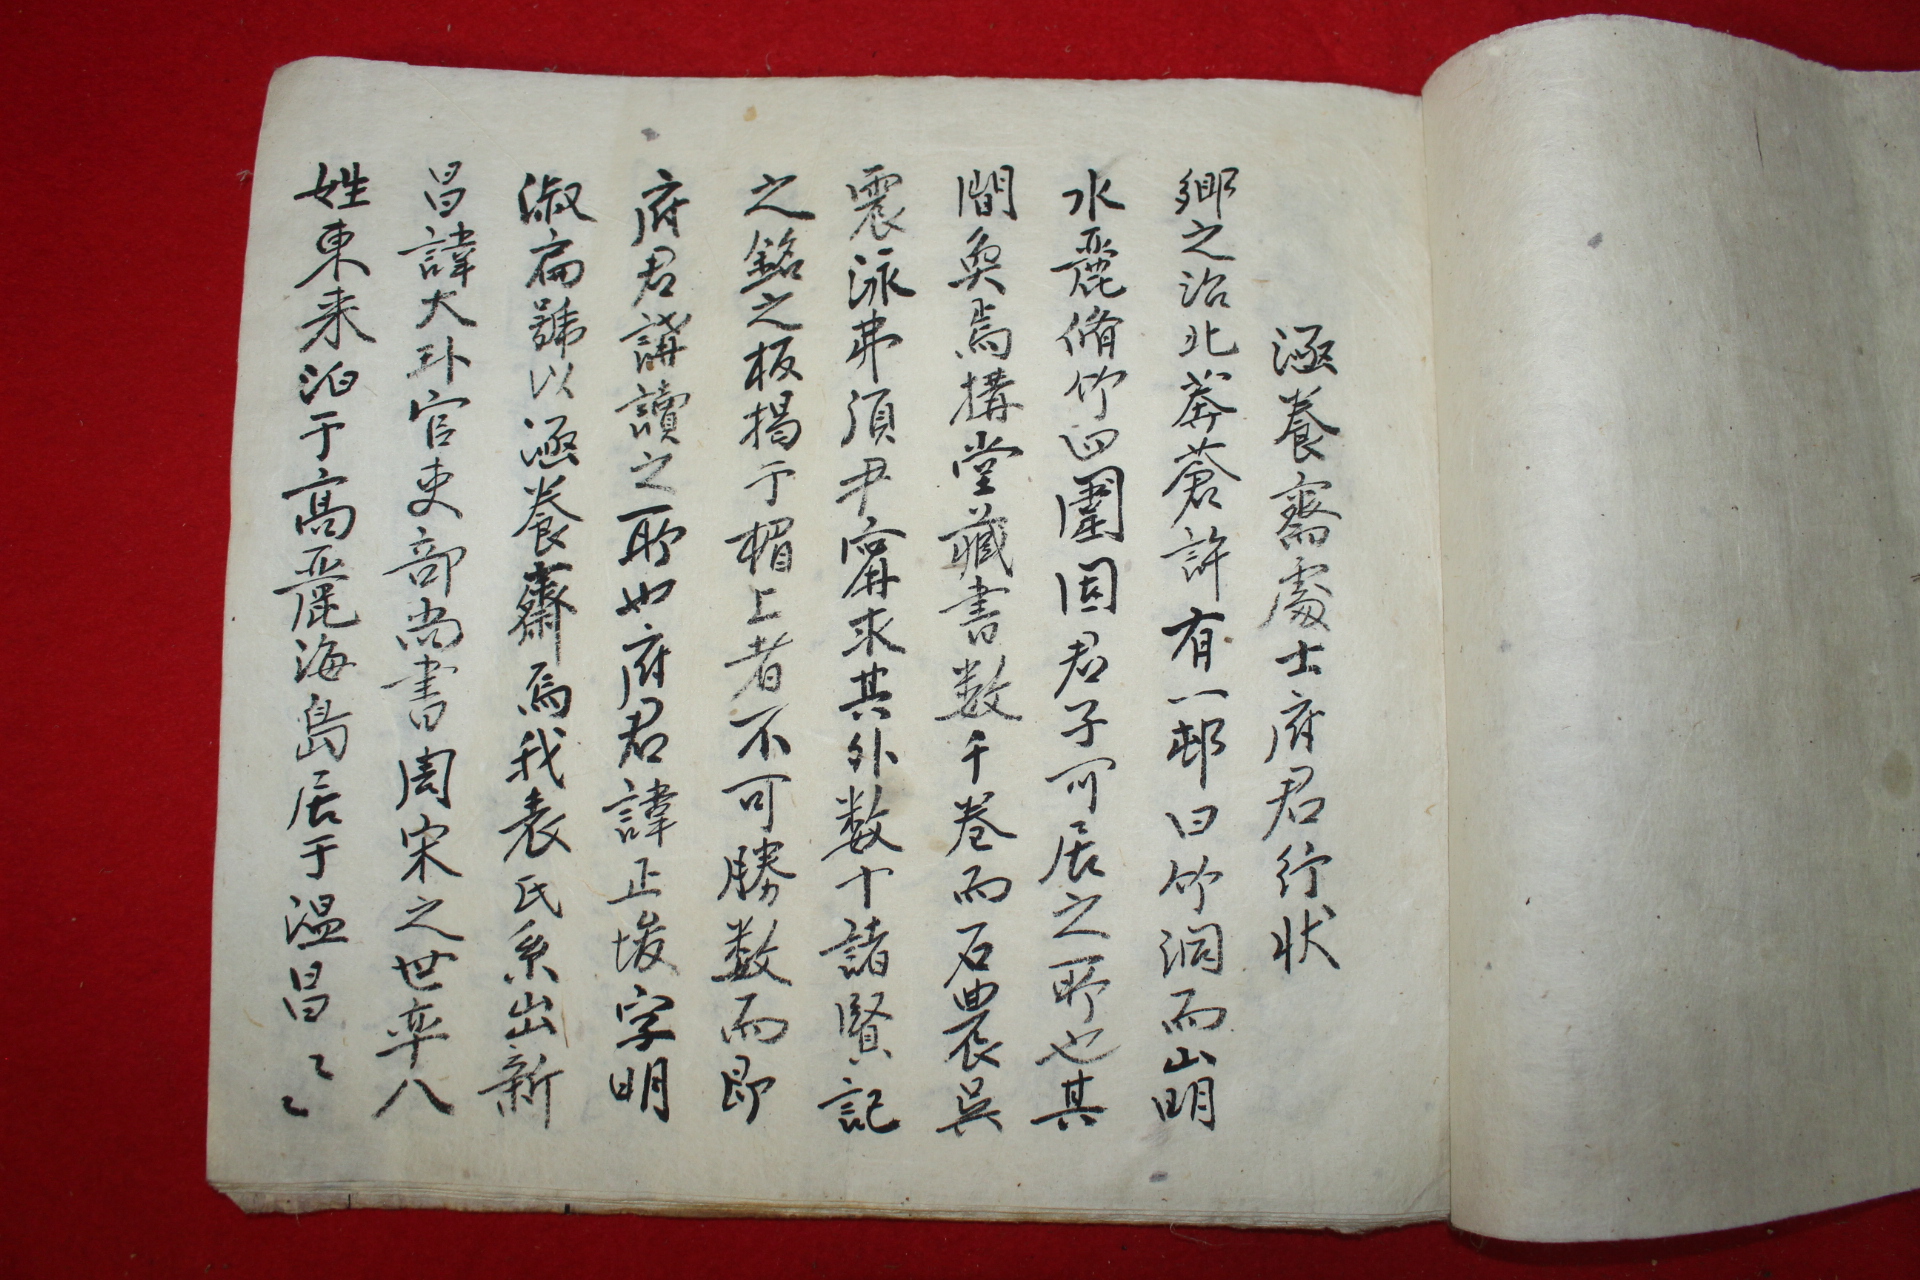 涵養齋處士府君行狀
鄉之治北莽蒼許有一邨曰竹洞而山明
水麗脩竹四圍固君子可居之所也其
間奐焉搆堂藏書数千卷而石農吳
震泳弗須尹甯求其外数十諸賢記
之銘之板揭于楣上者不可勝数而即
府君講讀之所也府君諱正埈字明
淑扁號以涵養齋焉我表氏系出新
昌諱大卦官吏部尚書周宋之世率八
姓東来泊于高麗海島居于溫昌〻〻